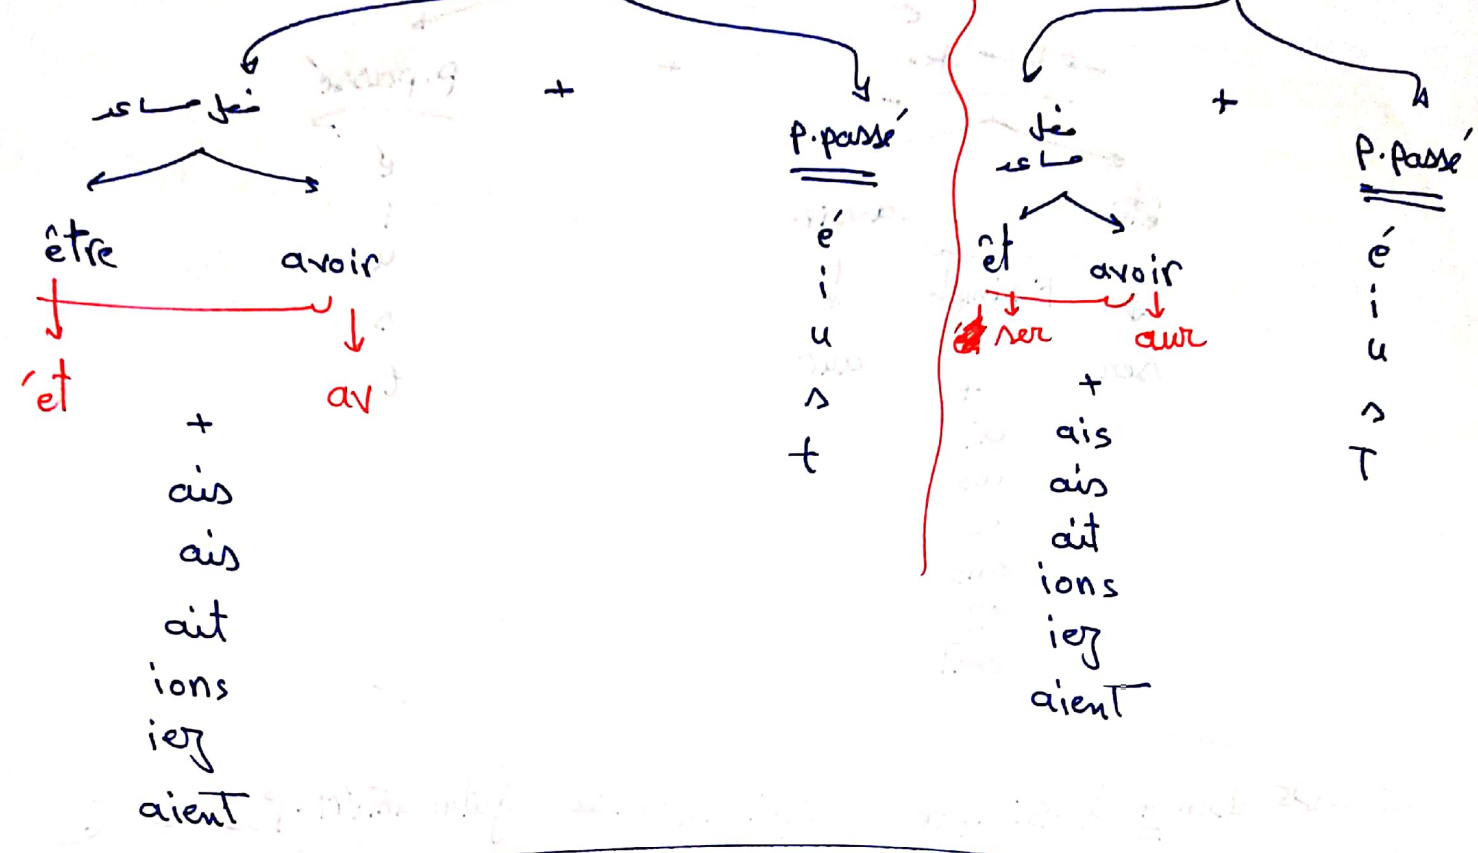 فعل مساعد + P.passé
être avoir
ét av
+
ais
ais
ait
ions
iez
aient
é
i
u
s
t
فعل
مساعد
+ P.passé
êt avoir
ser aur
+
ais
ais
ait
ions
iez
aient
é
i
u
s
T